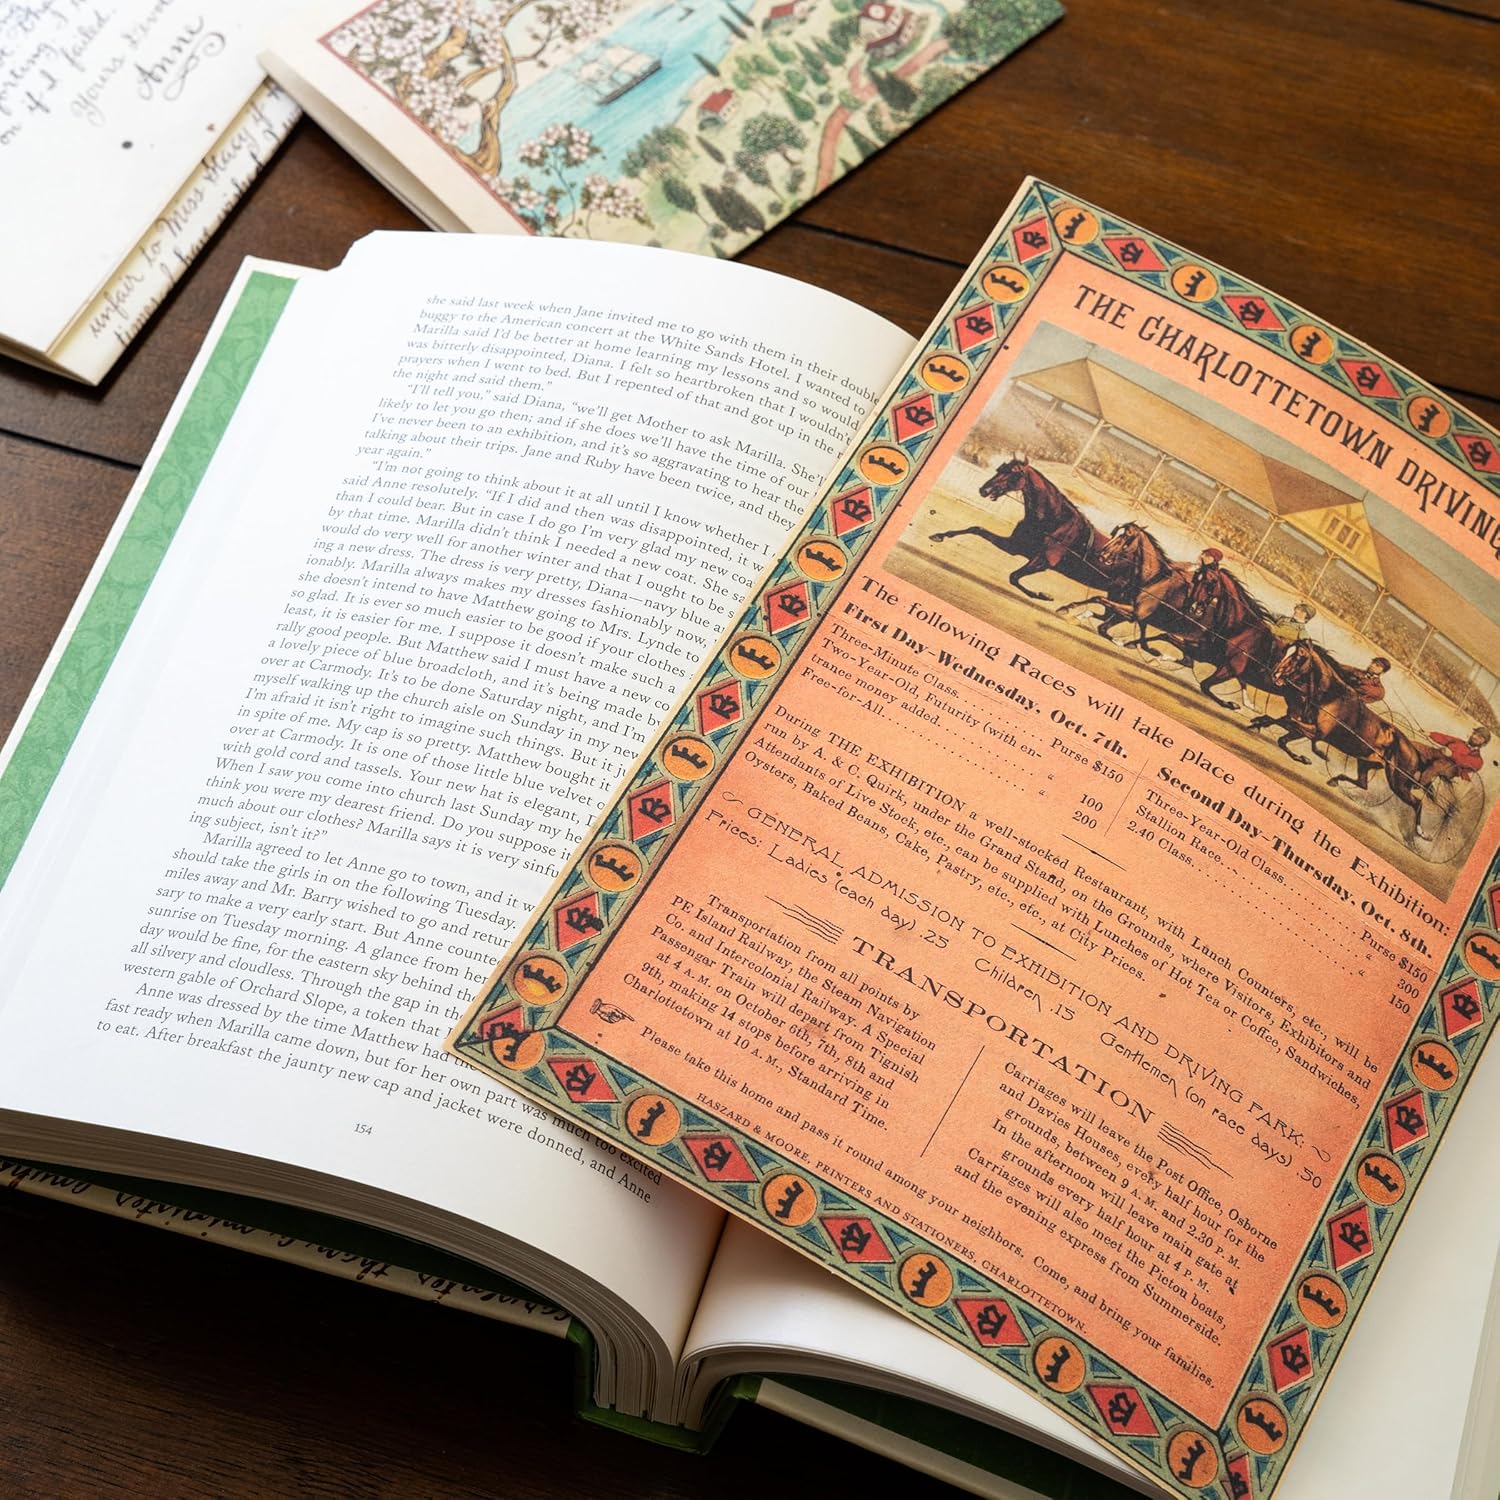 on if I failed.
Yours
Anne
unfair to Miss Stacy if
she said last week when Jane invited me to go with them in their double
buggy to the American concert at the White Sands Hotel. I wanted to
Marilla said I'd be better at home learning my lessons and so would
was bitterly disappointed, Diana. I felt so heartbroken that I wouldn't
prayers when I went to bed. But I repented of that and got up in the
the night and said them."
"I'll tell you," said Diana, "we'll get Mother to ask Marilla. She'll
likely to let you go then; and if she does we'll have the time of our
I've never been to an exhibition, and it's so aggravating to hear the
talking about their trips. Jane and Ruby have been twice, and they
year again."
"I'm not going to think about it at all until I know whether I
said Anne resolutely. "If I did and then was disappointed, it w
than I could bear. But in case I do go I'm very glad my new coa
by that time. Marilla didn't think I needed a new coat. She sa
would do very well for another winter and that I ought to be s
ing a new dress. The dress is very pretty, Diana—navy blue a
ionably. Marilla always makes my dresses fashionably now,
she doesn't intend to have Matthew going to Mrs. Lynde to
so glad. It is ever so much easier to be good if your clothes
least, it is easier for me. I suppose it doesn't make such a
rally good people. But Matthew said I must have a new co
a lovely piece of blue broadcloth, and it's being made by
over at Carmody. It's to be done Saturday night, and I'm
myself walking up the church aisle on Sunday in my new
I'm afraid it isn't right to imagine such things. But it ju
in spite of me. My cap is so pretty. Matthew bought it
over at Carmody. It is one of those little blue velvet o
with gold cord and tassels. Your new hat is elegant, D
When I saw you come into church last Sunday my he
think you were my dearest friend. Do you suppose it
much about our clothes? Marilla says it is very sinfu
ing subject, isn't it?"
Marilla agreed to let Anne go to town, and it w
should take the girls in on the following Tuesday.
miles away and Mr. Barry wished to go and retur
sary to make a very early start. But Anne counte
sunrise on Tuesday morning. A glance from her
day would be fine, for the eastern sky behind the
all silvery and cloudless. Through the gap in the
western gable of Orchard Slope, a token that
Anne was dressed by the time Matthew had
fast ready when Marilla came down, but for her own part was much too excited
to eat. After breakfast the jaunty new cap and jacket were donned, and Anne
154
THE CHARLOTTETOWN DRIVING
The following Races will take place during the Exhibition:
First Day–Wednesday, Oct. 7th.
Three-Minute Class. Purse $150
Two-Year-Old, Futurity (with en-
trance money added. " 100
Free-for-All. " 200
Second Day–Thursday, Oct. 8th.
Three-Year-Old Class. Purse $150
Stallion Race. " 300
2.40 Class. " 150.
During THE EXHIBITION a well-stocked Restaurant, with Lunch Counters, etc., will be
run by A. & C. Quirk, under the Grand Stand, on the Grounds, where Visitors, Exhibitors and
Attendants of Live Stock, etc., can be supplied with Lunches of Hot Tea or Coffee, Sandwiches,
Oysters, Baked Beans, Cake, Pastry, etc., etc., etc., at City Prices.
GENERAL ADMISSION TO EXHIBITION AND DRIVING PARK:
Prices: Ladies (each day) .25 Children .15 Gentlemen (on race days) .50
TRANSPORTATION
Transportation from all points by
PE Island Railway, the Steam Navigation
Co. and Intercolonial Railway. A Special
Passenger Train will depart from Tignish
at 4 A. M. on October 6th, 7th, 8th and
9th, making 14 stops before arriving in
Charlottetown at 10 A. M., Standard Time.
Carriages will leave the Post Office, Osborne
and Davies Houses, every half hour for the
grounds, between 9 A. M. and 2.30 P. M.
In the afternoon will leave main gate at
grounds every half hour at 4 P. M.
Carriages will also meet the Pictou boats,
and the evening express from Summerside.
Please take this home and pass it round among your neighbors. Come, and bring your families.
HASZARD & MOORE, PRINTERS AND STATIONERS, CHARLOTTETOWN.